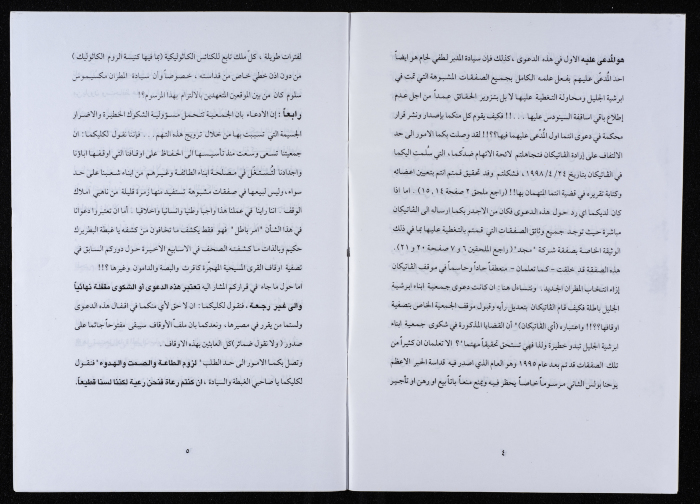 هو المدعى عليه الاول في هذه الدعوى ، كذلك فإن سيادة المدبر لطفي لحام هو ايضاً
احد المُدعّى عليهم بفعل علمه الكامل بجميع الصفقات المشبوهة التي تمت في
ابرشية الجليل ومحاولة التغطية عليها لا بل بتزوير الحقائق عمداً من اجل عدم
إطلاع باقي اساقفة السينودس عليها . . . !! فكيف يقوم كل منكما بإصدار ونشر قرار
محكمة في دعوى انتما اول المُدعى عليهما فيها؟؟!! لقد وصلت بكما الامور الى حد
الالتفاف على إرادة الڤاتيكان فتجاهلتم لائحة الاتهام ضدّكما، التي سلّمت اليكما
في الڤاتيكان بتاريخ ٢٤/ ٤/ ١٩٩٨، فشكلتم وفد تحقيق قمتم انتم بتعيين اعضائه
وكتابة تقريره في قضية انتما المتهمان بها!! (راجع ملحق ٢ صفحة ١٤ ، ١٥). اما اذا
كان لديكما اي رد حول هذه الدعوى فكان من الاجدر بكما إرساله الى الڤاتيكان
مباشرة حيث توجد جميع وثائق الصفقات التي قمتم بالتغطية عليها بما في ذلك
الوثيقة الخاصة بصفقة شركة "مجد"! (راجع الملحقين ٦ و ٧ صفحة ٢٠ و ٢١).
هذه الصفقة قد خلقت - كما تعلمان - منعطفاً حاداً وحاسماً في موقف الڤاتيكان
إزاء انتخاب المطران الجديد. ونتساءل هنا : ان كانت دعوى جمعية ابناء ابرشية
الجليل باطلة فكيف قام الڤاتيكان بتعديل رأيه وقبول موقف الجمعية الخاص بتصفية
اوقافها؟؟!! واعتباره (أي الڤاتيكان) "ان القضايا المذكورة في شكوى جمعية ابناء
ابرشية الجليل تبدو خطيرة ولذا فهي تستحق تحقيقاً مهتما"؟ الا تعلمان ان كثيراً من
تلك الصفقات قد تم بعد عام ١٩٩٥ وهو العام الذي اصدر فيه قداسة الحبر الاعظم
يوحنا بولس الثاني مرسوماً خاصاً يحظر فيه ويمنع منعاً باتاً بيع او رهن او تأجير
٤
لفترات طويلة ، كلّ ملك تابع للكنائس الكاثوليكية (بما فيها كنيسة الروم الكاثوليك )
من دون اذن خطي خاص من قداسته ، خصوصاً وأن سيادة المطران مكسيموس
سلوم كان من بين الموقعين المتعهدين بالالتزام بهذا المرسوم؟!!
رابعاً : إن الادعاء بان الجمعية تتحمل مسؤولية الشكوك الخطيرة والاضرار
الجسيمة التي تسببت بها من خلال ترويج هذه التهم . . . فإننا نقول لكليكما: ان
جمعيتنا تسعى وسعت منذ تأسيسها الى الحفاظ على اوقافنا التي اوقفها اباؤنا
واجدادنا لتُستغل في مصلحة ابناء الطائفة وغيرهم من ابناء شعبنا على حد
سواء، وليس لبيعها في صفقات مشبوهة تستفيد منها زمرة قليلة من ناهبي املاك
الوقف . اننا رأينا في عملنا هذا واجبا وطنيا وانسانيا واخلاقيا . أما ان تعتبروا دعوانا
في هذا الشأن "امر باطل" فهو فقط يكشف ما تخافون من كشفه يا غبطة البطريرك
حكيم وبالذات ما كشفته الصحف في الاسابيع الاخيرة حول دوركم السابق في
تصفية اوقاف القرى المسيحية المهجّرة كاقرث والبصة والدامون وغيرها ؟!!
اما حول ما جاء في قراركم المشار اليه تعتبر هذه الدعوى أو الشكوى مقفلة نهائياً
والى غير رجعة ، فنقول لكليكما : ان لا حق لأي منكما في اقفال هذه الدعوى
ولستما من يقرر في مصيرها ، ونعدكما بان ملفّ الأوقاف سيبقى مفتوحاً جاثما على
صدور ( ولا نقول ضمائر) كل العابثين بهذه الاوقاف .
وتصل بكما الامور الى حد الطلب "لزوم الطاعة والصمت والهدوء" فنقول
لكليكما يا صاحبي الغبطة والسيادة ، ان كنتم رعاة فنحن رعية لكننا لسنا قطيعاً.
٥